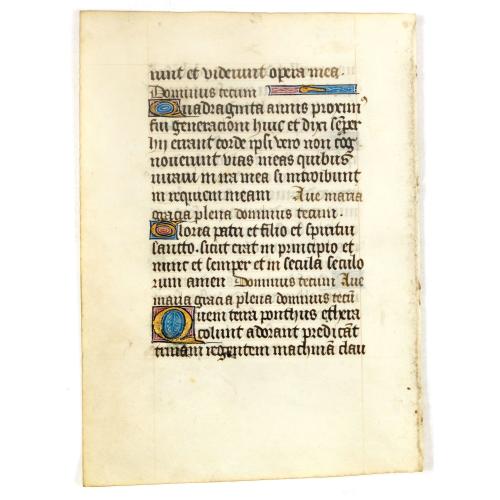 runt et viderunt opera mea.
Dominus tecum
Quadraginta annis proxim⁹
fui generacioni huic et dixi semper
hii errant corde ipsi vero non cog
noverunt vias meas quibus
iuravi in ira mea si introibunt
in requiem meam Ave maria
gracia plena dominus tecum.
Gloria patri et filio et spiritui
sancto. sicut erat in principio et
nunc et semper et in secula seculo
rum amen Dominus tecum Ave
maria gracia plena dominus tecū
Quem terra ponthus ethera
colunt adorant predicāt
trinam regentem machinā clau